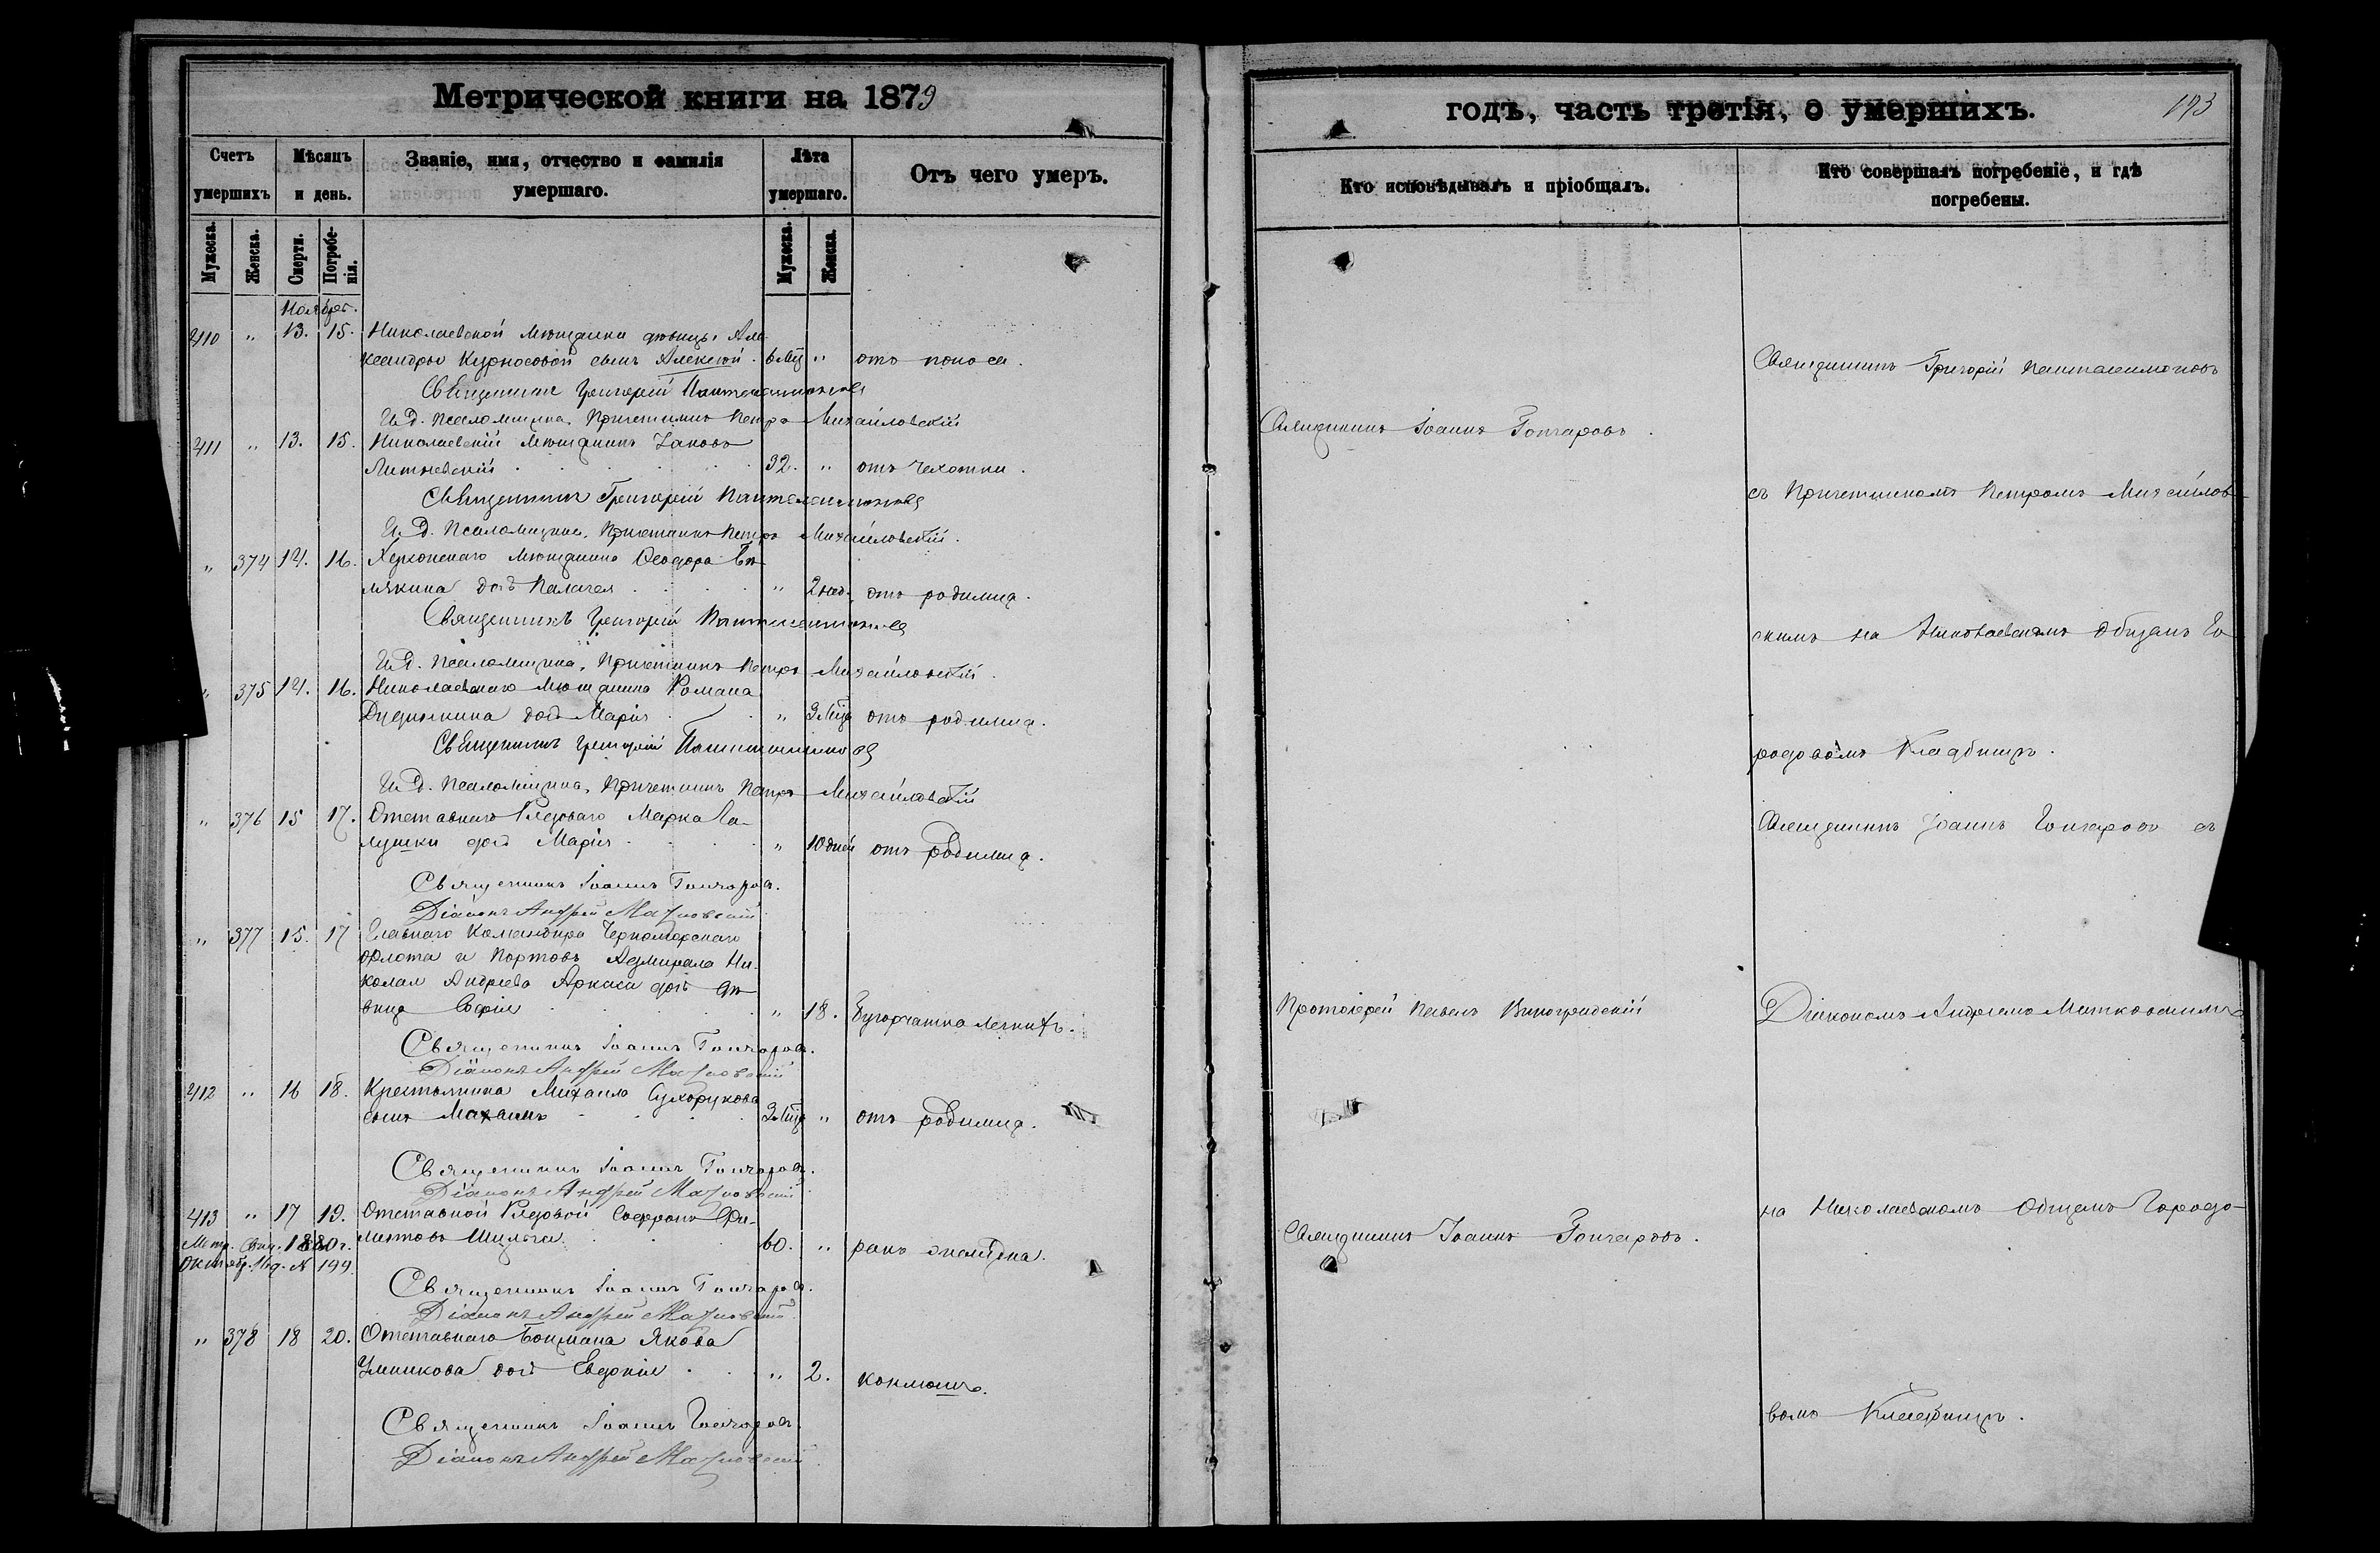 Метрической книги на 1879
Счетъ умершихъ
Мѣсяцъ и день.
Званіе, имя, отчество и фамилія умершаго.
Лѣта умершаго.
Отъ чего умеръ.
Мужеска.
Женска.
Смерти.
Погребенія.
Мужеска.
Женска.
Ноябрь.
410 " 13. 15. Николаевской мѣщанки дѣвицы Але
ксандры Курносовой сынъ Алексѣй. 6 мц " отъ поноса.
Священникъ Григорій Пантелеимоновъ
И.д. псаломщика, Причетникъ Петръ Михайловскій
411 " 13. 15. Николаевскій мѣщанинъ Іаковъ
32. " отъ чахотки.
Священникъ Григорій Пантелеимоновъ
И.д. Псаломщика, Причетникъ Петръ Михайловскій.
" 374 14. 16. Херсонскаго мѣщанина Ѳеодора
дочь Пелагея " 2 нед. отъ родимца.
Священникъ Григорій Пантелеимоновъ
И.д. Псаломщика, Причетникъ Петръ Михайловскій.
" 375 14. 16. Николаевскаго мѣщанина Романа
дочь Марія " 3 мца отъ родимца.
Священникъ Григорій Пантелеимоновъ
И.д. Псаломщика, Причетникъ Петръ Михайловскій
" 376 15 17. Отставнаго Рядоваго Марка Га-
лушки дочь Марія " 10 дней отъ родимца.
Священникъ Іоаннъ Гончаровъ.
Діаконъ Андрей
" 377 15. 17 Главнаго Командира Черноморскаго
флота и Портовъ Адмирала Ни-
колая Андреева Аркаса дочь дѣ
вица Софія " 18. Бугорчатка легкихъ.
Священникъ Іоаннъ Гончаровъ.
Діаконъ Андрей
412 " 16 18. Крестьянина Михаила Сухорукова
сынъ Михаилъ 3 мца " отъ родимца.
Священникъ Іоаннъ Гончаровъ.
Діаконъ Андрей
413 " 17 19. Отставной Рядовой Софронъ Фи-
липповъ 60. " ракъ желудка.
1880 г.
Октябр. № 199.
Священникъ Іоаннъ Гончаровъ.
Діаконъ Андрей
" 378 18 20. Отставнаго Боцмана Якова
дочь Евдокія " 2. коклюшъ.
Священникъ Іоаннъ Гончаровъ.
Діаконъ Андрей
годъ, часть третія, о умершихъ.
193
Кто исповѣдывалъ и пріобщалъ.
Кто совершалъ погребеніе, и гдѣ погребены.
Священникъ Григорій Пантелеимоновъ
Священникъ Іоаннъ Гончаровъ.
съ Причетникомъ Петромъ Михайлов-
скимъ на Николаевскомъ общемъ Го-
родовомъ Кладбищѣ.
Священникъ Іоаннъ Гончаровъ съ
Протоіерей Павелъ Виноградскій
Діакономъ Андреемъ
на Николаевскомъ Общемъ Городо-
Священникъ Іоаннъ Гончаровъ.
вомъ Кладбищѣ.